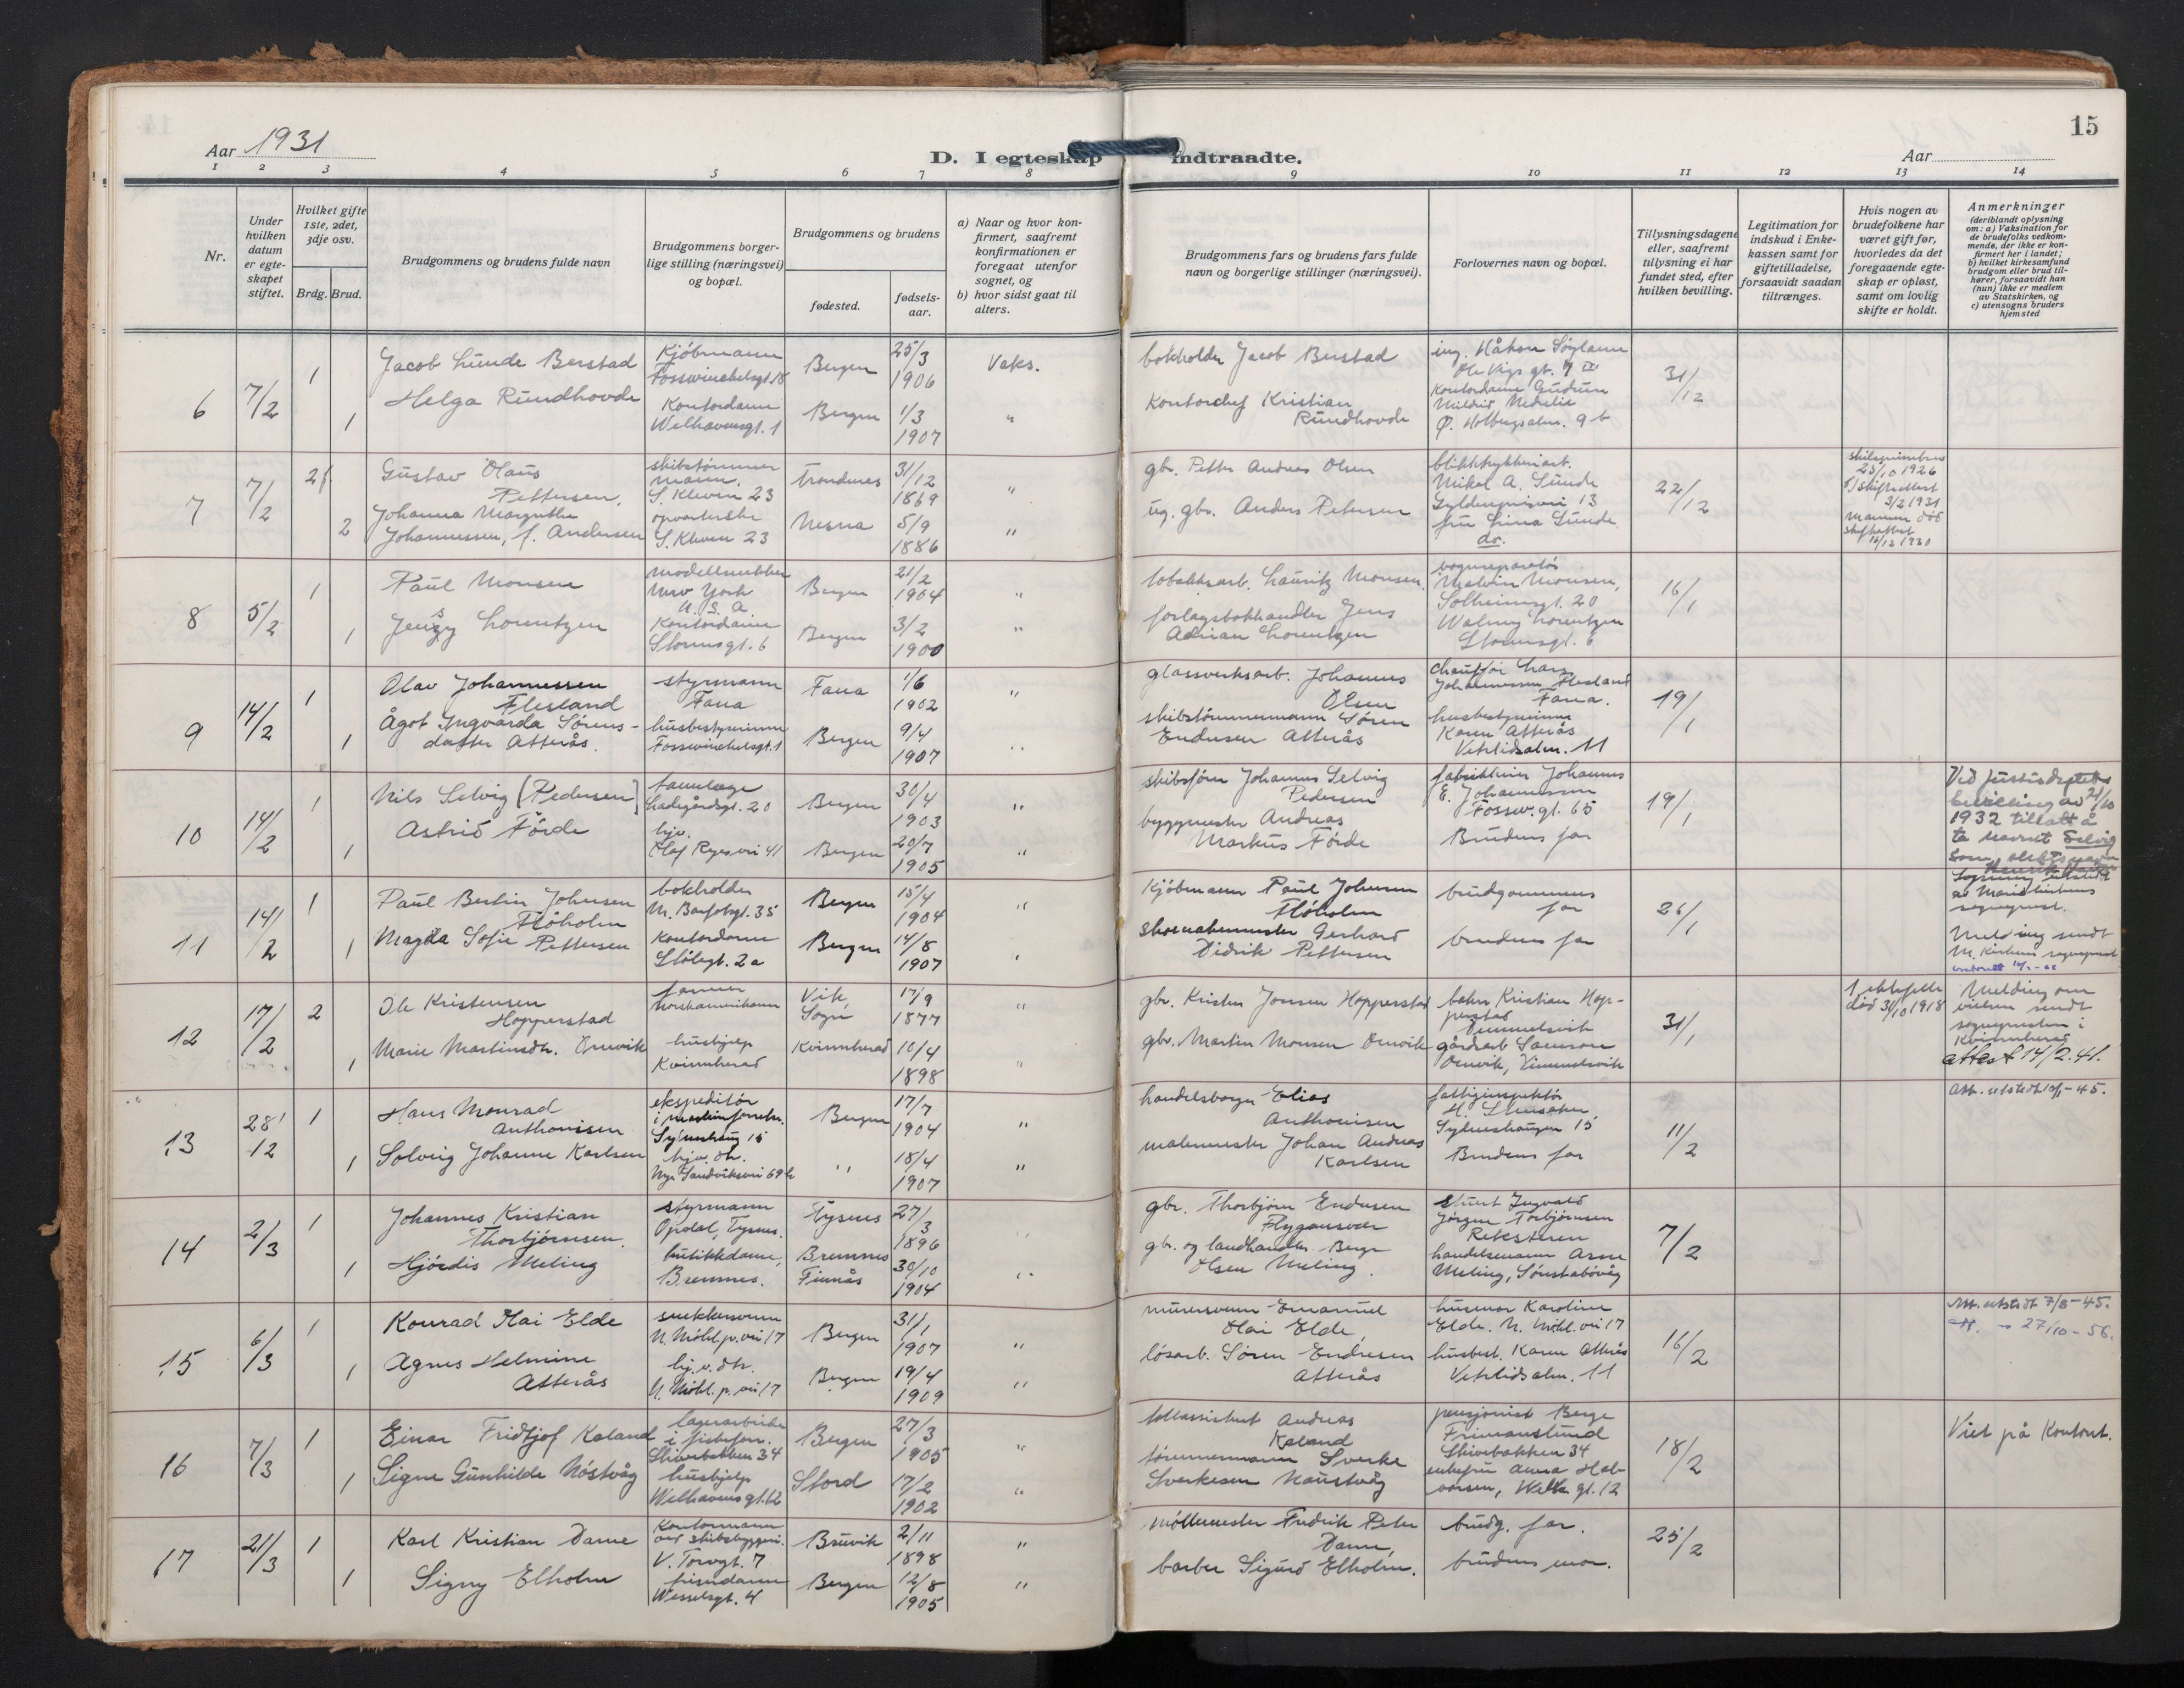 15
Aar 1931
D. I egteskap indtraadte.
Aar
1 2 3 4 5 6 7 8 9 10 11 12 13 14
Nr.
Under hvilken datum er egte-skapet stiftet.
Hvilket gifte 1ste, 2det, 3dje osv.
Brdg. Brud.
Brudgommens og brudens fulde navn
Brudgommens borger-lige stilling (næringsvei) og bopæl.
Brudgommens og brudens
fødested.
fødsels-aar.
a) Naar og hvor kon-firmert, saafremt konfirmationen er foregaat utenfor sognet, og
b) hvor sidst gaat til alters.
Brudgommens fars og brudens fars fulde navn og borgerlige stillinger (næringsvei).
Forlovernes navn og bopæl.
Tillysningsdagene eller, saafremt tillysning ei har fundet sted, efter hvilken bevilling.
Legitimation for indskud i Enke-kassen samt for giftetilladelse, forsaavidt saadan tiltrænges.
Hvis nogen av brudefolkene har været gift før, hvorledes da det foregaaende egte-skap er opløst, samt om lovlig skifte er holdt.
Anmerkninger
(deriblandt oplysning om: a) Vaksination for de brudefolks vedkom-mende, der ikke er kon-firmert her i landet; b) hvilket kirkesamfund brudgom eller brud til-hører, forsaavidt han (hun) ikke er medlem av Statskirken, og c) utensogns bruders hjemsted
6 7/2 1 Jacob Lunde Berstad Kjøbmann Fosswinckelsgt. 18 Bergen 25/3 1906 Vaks.
bokholder Jacob Berstad ing. Håkon Søyland Ole Vigs gt. 7 III 31/12
1 Helga Rundhovde Kontordame Welhavensgt. 1 Bergen 1/3 1907 "
Kontorchef Kristian Rundhovde Kontordame Gudrun Nedrelie Ø. Holbergsalm. 9 b
7 7/2 2 Gustav Olaus Pettersen, skibstømmermann. S. Kleven 23 Trondenes 31/12 1869 "
gbr. Petter Andreas Olsen Mikal A. Lunde 13 22/12 25/10 1926 3/2 1931
2 Johanna Margrethe Johannessen, f. Andersen opvarterske S. Kleven 23 Nesna 5/9 1886 "
ug. gbr. Anders Petersen fru Lina Lunde do. mannen død 1930
8 5/2 1 Paul Monsen modellsnekker New York U. S. A. Bergen 21/2 1904 "
tobakksarb. Lauritz Monsen Melvin Monsen, Solheimsgt. 20 16/1
1 Jenny Lorentzen Kontordame Stormsgt. 6 Bergen 3/2 1900 "
forlagsbokhandler Jens Adrian Lorentzen Lorentzen Stormsgt. 6
9 14/2 1 Olav Johannessen Flesland styrmann Fana Fana 1/6 1902 "
glassverksarb. Johannes Olsen chauffør Lars Johannessen Flesland Fana. 19/1
1 Ågot Ingvarda Sørens-datter Atterås. husbestyrerinne Fosswinckelsgt. 1 Bergen 9/4 1907 "
skibstømmermann Søren Endresen Atterås husbestyrerinne Karen Atterås Vetrlidsalm. 11
10 14/2 1 Nils Selvig (Pedersen) tannlæge Ladegårdsgt. 20 Bergen 30/4 1903 "
skibsfører Johannes Selvig Pedersen Johannes E. Johannessen Fossw. gt. 65 19/1
1 Astrid Førde hjv. Olaf Ryesvei 41 Bergen 20/7 1905 "
byggmester Andreas Markus Førde Brudens far
Ved Justisdeptets bevilling av 21/10 1932 tillatt å ta navnet Selvig som slektsnavn
11 14/2 1 Paul Bertin Johnsen Fløholm bokholder M. Barfotsgt. 35 Bergen 15/4 1904 "
Kjøbmann Paul Johnsen Fløholm brudgommens far 26/1 Lysning utstedt av Mariakirkens sogneprest.
1 Magda Sofie Pettersen Kontordame Stølegt. 2a Bergen 14/8 1907 "
skomakermester Gerhard Didrik Pettersen brudens far Melding sendt M. kirkens sogneprest
12 17/2 2 Ole Kristensen Hopperstad farmer Norskamerikaner Vik, Sogn 17/9 1877 "
gbr. Kristen Jonsen Hopperstad Kristian Hop-perstad 31/1 1 ektefelle død 31/10 1918 Melding om vielsen sendt sognepresten i Kvinnherad
1 Marie Martinsdtr. Omvik hushjelp Kvinnherad Kvinnherad 10/4 1898 "
gbr. Martin Monsen Omvik gårdarb. Samson Omvik, attest 14/2. 41.
13 28/12 1 Hans Monrad Anthonisen ekspeditør Bergen 17/7 1904 "
handelsborger Elias Anthonisen fattiginspektør 15 11/2 Att. utstedt -45.
1 Solveig Johanne Karlsen hjv. dtr. Nye Sandviksvei 69 b " 18/4 1907 "
malermester Johan Andreas Karlsen Brudens far
14 2/3 1 Johannes Kristian Thorbjørnsen, styrmann Opdal, Tysnes. Tysnes 27/3 1896 "
gbr. Thorbjørn Endresen Flygansvær Ingvald Jørgen Torbjørnsen Reksteren 7/2
1 Hjørdis Meling butikkdame, Bremnes. Bremnes Finnås 30/10 1904 "
gbr. og landhandler Berge Olsen Meling. handelsmann Arne Meling,
15 6/3 1 Konrad Hai Elde snekkersvenn N. Møhl. p. vei 17 Bergen 31/1 1907 "
murersvenn Emanuel Hai Elde, husmor Karoline Elde. N. Møhl. vei 17 16/2 Att. utstedt 7/8 - 45. 27/10 - 56.
1 Agnes Helmine Atterås hj. v. dtr. N. Møhl. p. vei 17 Bergen 19/4 1909 "
løsarb. Søren Endresen Atterås husbest. Karen Atterås Vetrlidsalm. 11
16 7/3 1 Einar Fridtjof Kaland lagerarbeider i fiskeforr. Skivebakken 34 Bergen 27/3 1905 "
tollassistent Andreas Kaland pensjonist Berge Skivebakken 34 18/2 Viet på Kontoret.
1 Signe Gunhilde Nøstvåg hushjelp Welhavensgt. 12 Stord 17/2 1902 "
tømmermann Sverke Sverkesen Naustvåg enkefru Anna Hal-vorsen, Welh. gt. 12
17 21/3 1 Karl Kristian Dame Kontormann ved skibsbyggeri. V. Torvgt. 7 Bruvik 2/11 1898 "
møllemester Fredrik Peter Dame, brudg. far. 25/2
1 Signy Elholm frisørdame Wesselsgt. 4 Bergen 12/8 1905 "
barber Sigurd Elholm. brudens mor.